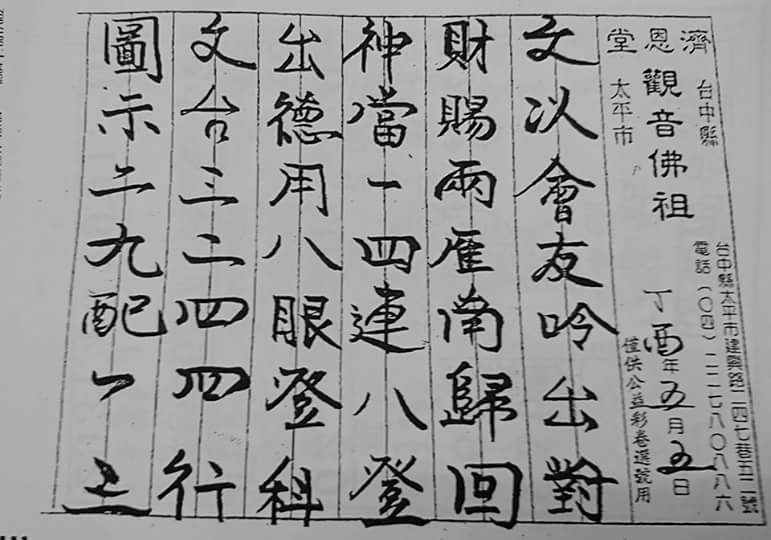 台中縣太平市建興路二四七巷五二號
電話（〇四）二二七八〇八八六
台中縣
太平市
濟恩堂
觀音佛祖
丁酉年五月五日
僅供公益彩卷選號用
文以會友吟出對
財賜兩雁南歸回
神當一四連八登
出德用八眼登科
文台三二四四行
圖示二九配一上